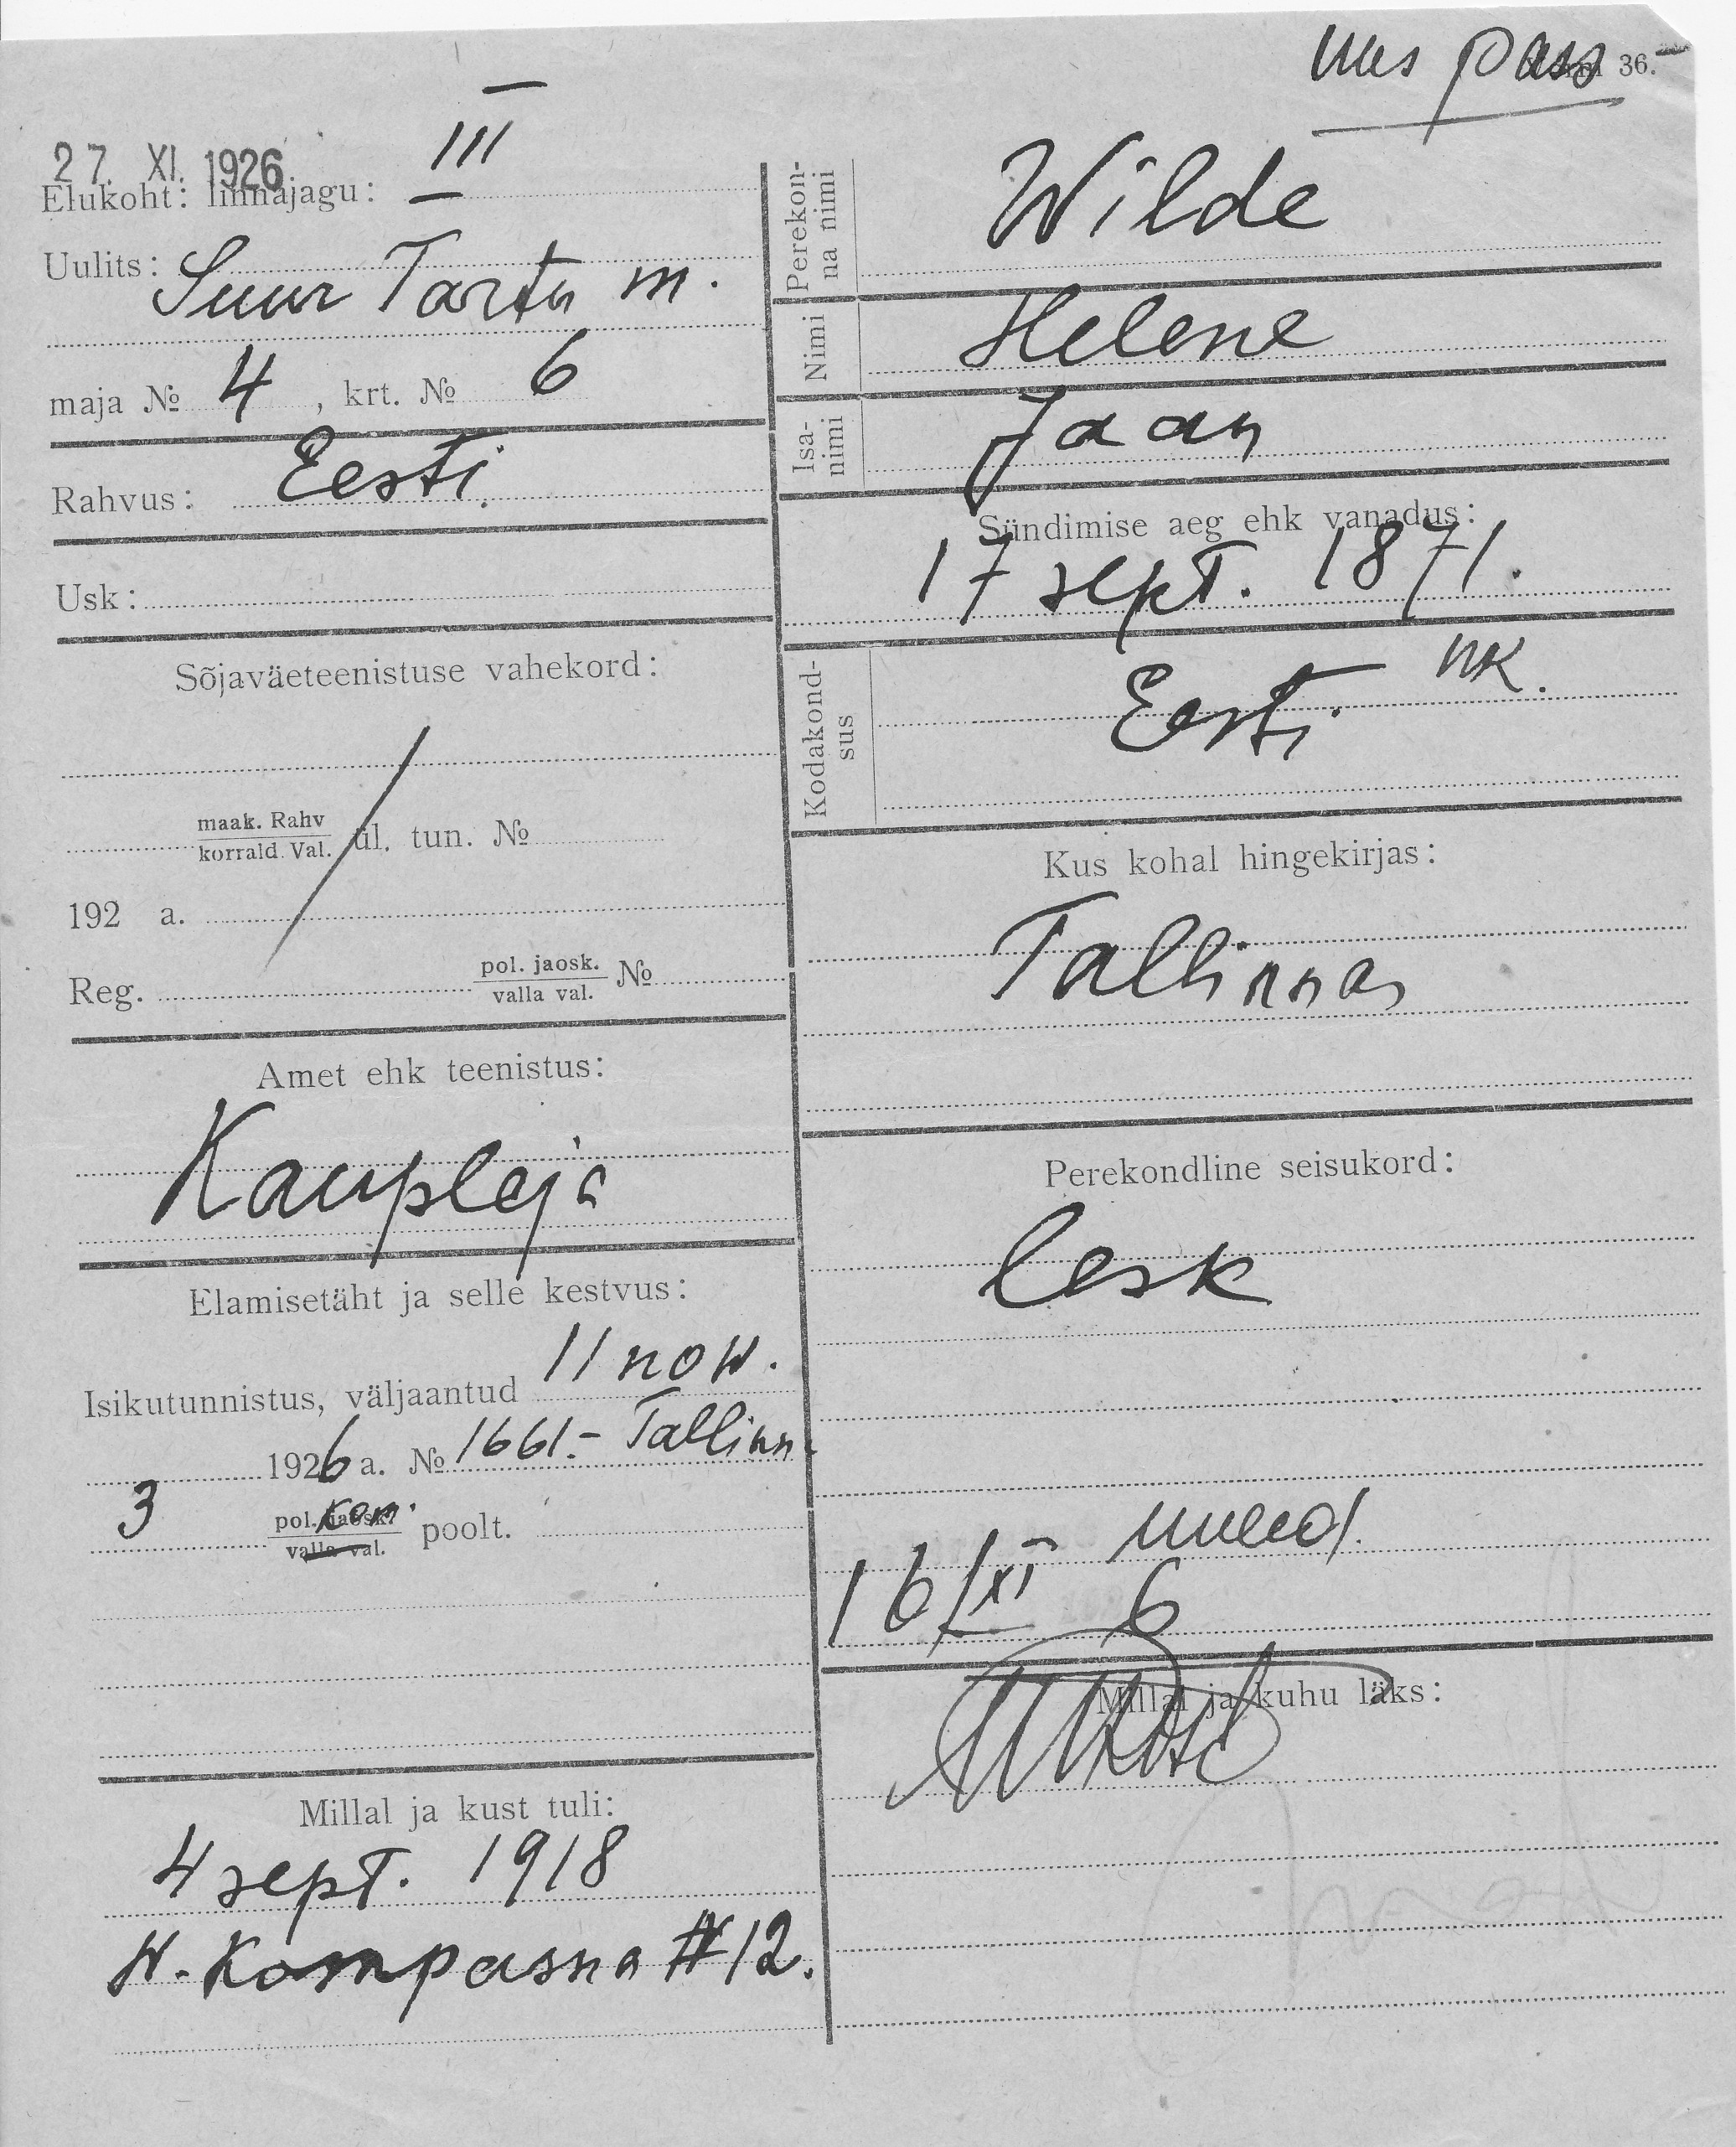 uus pass
36.
27. XI. 1926
Elukoht: linnajagu: III
Uulits: Suur Tartu m.
maja № 4, krt. № 6
Rahvus: Eesti.
Usk:
Sõjaväeteenistuse vahekord:
maak. Rahv
korrald. Val. ül. tun. №
192 a.
Reg. pol. jaosk. №
valla val.
Amet ehk teenistus:
Kaupleja
Elamisetäht ja selle kestvus:
Isikutunnistus, väljaantud 11 now.
1926 a. № 1661.- Tallinn.
3 pol. jaosk. kom. poolt.
valla val.
Millal ja kust tuli:
4 sept. 1918
W. Kompasna # 12.
Perekon-
na nimi
Wilde
Nimi Helene
Isa-
nimi
Jaan
Sündimise aeg ehk vanadus:
17 sept. 1871.
Kodakond-
sus
Eesti. nk.
Kus kohal hingekirjas:
Tallinnas
Perekondline seisukord:
lesk
16/XI 6
Millal ja kuhu läks: